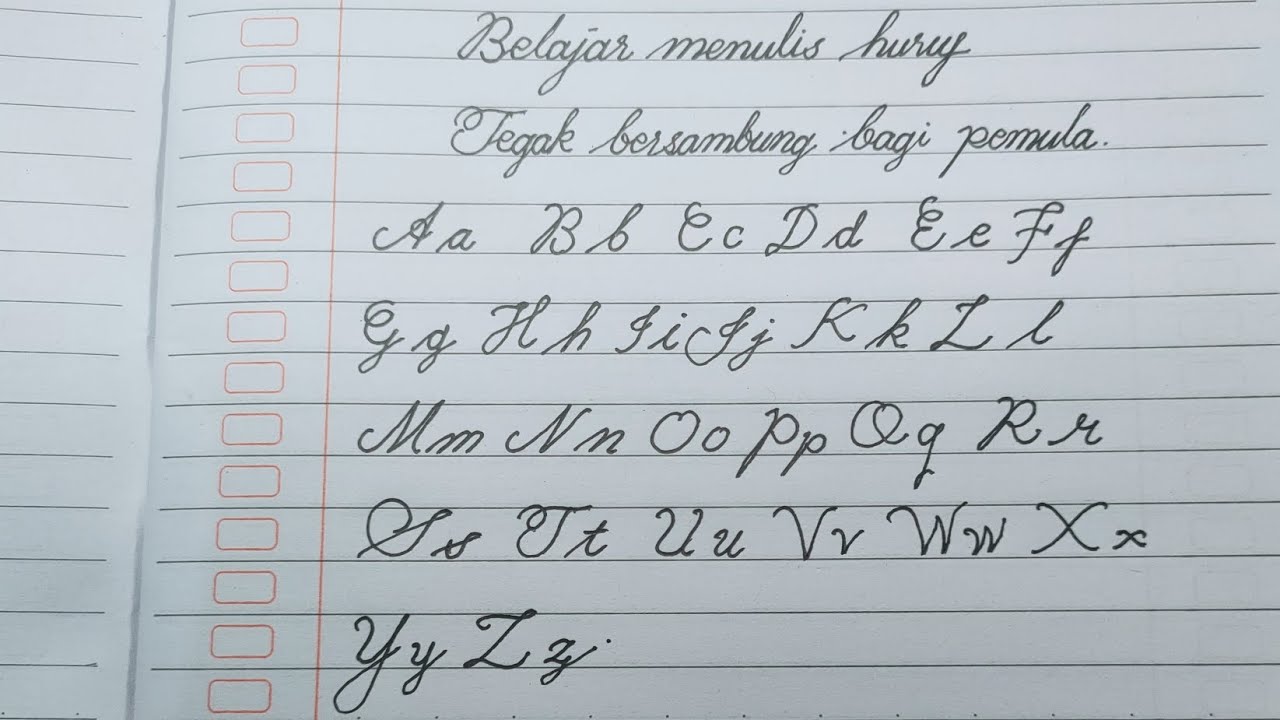 Belajar menulis huruf
Tegak bersambung bagi pemula.
Aa Bb Cc Dd Ee Ff
Gg Hh Ii Jj Kk Ll
Mm Nn Oo Pp Qq Rr
Ss Tt Uu Vv Ww Xx
Yy Zz.